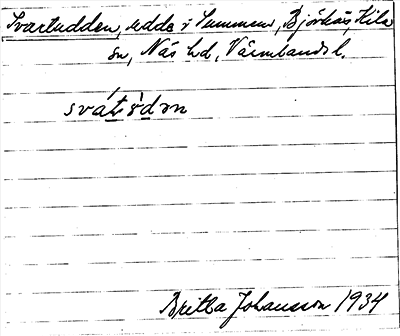 Svartudden, udde i Summen, Björkås, Kila
sn, Näs hd, Värmlands l.
svát ù̀dən
Britta Johansson 1934